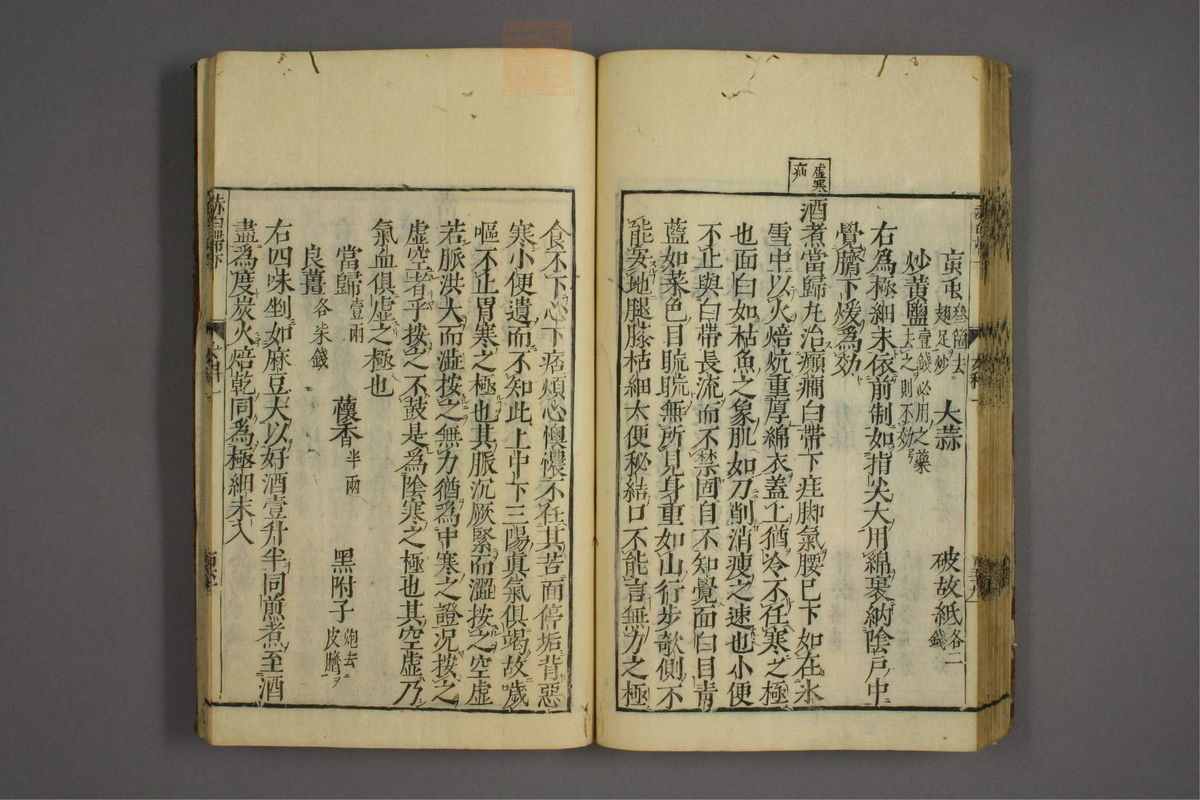 䖟䖝 叁箇去翅足炒 大蒜 破故紙 各二錢
炒黃鹽 壹錢必用之藥去之則不効
右爲極細末依前制如指尖大用綿裹納陰戶中
覺臍下煖爲効
虛寒病
酒煮當歸丸治癲癇白帶下疰脚氣腰已下如在氷
雪中以火焙炕重厚綿衣蓋上猶冷不任寒之極
也面白如枯魚之象肌如刀削消瘦之速也小便
不止與白帶長流而不禁固自不知覺面白目青
藍如菜色目䀮䀮無所見身重如山行步欹側不
能安地腿膝枯細大便秘結口不能言無力之極
食不下心下痞煩心懊憹不任其苦面停垢背惡
寒小便遺而不知此上中下三陽眞氣俱竭故噦
嘔不止胃寒之極也其脈沉厥緊而澀按之空虛
若脈洪大而澁按之無力猶爲中寒之證况按之
虛空者乎按之不鼓是爲陰寒之極也其空虛乃
氣血俱虛之極也
當歸 壹兩 蘹香 半兩 黑附子 炮去皮臍
良薑 各柒錢
右四味剉如麻豆大以好酒壹升半同煎煮至酒
盡爲度炭火焙乾同爲極細末入
赤白帶下